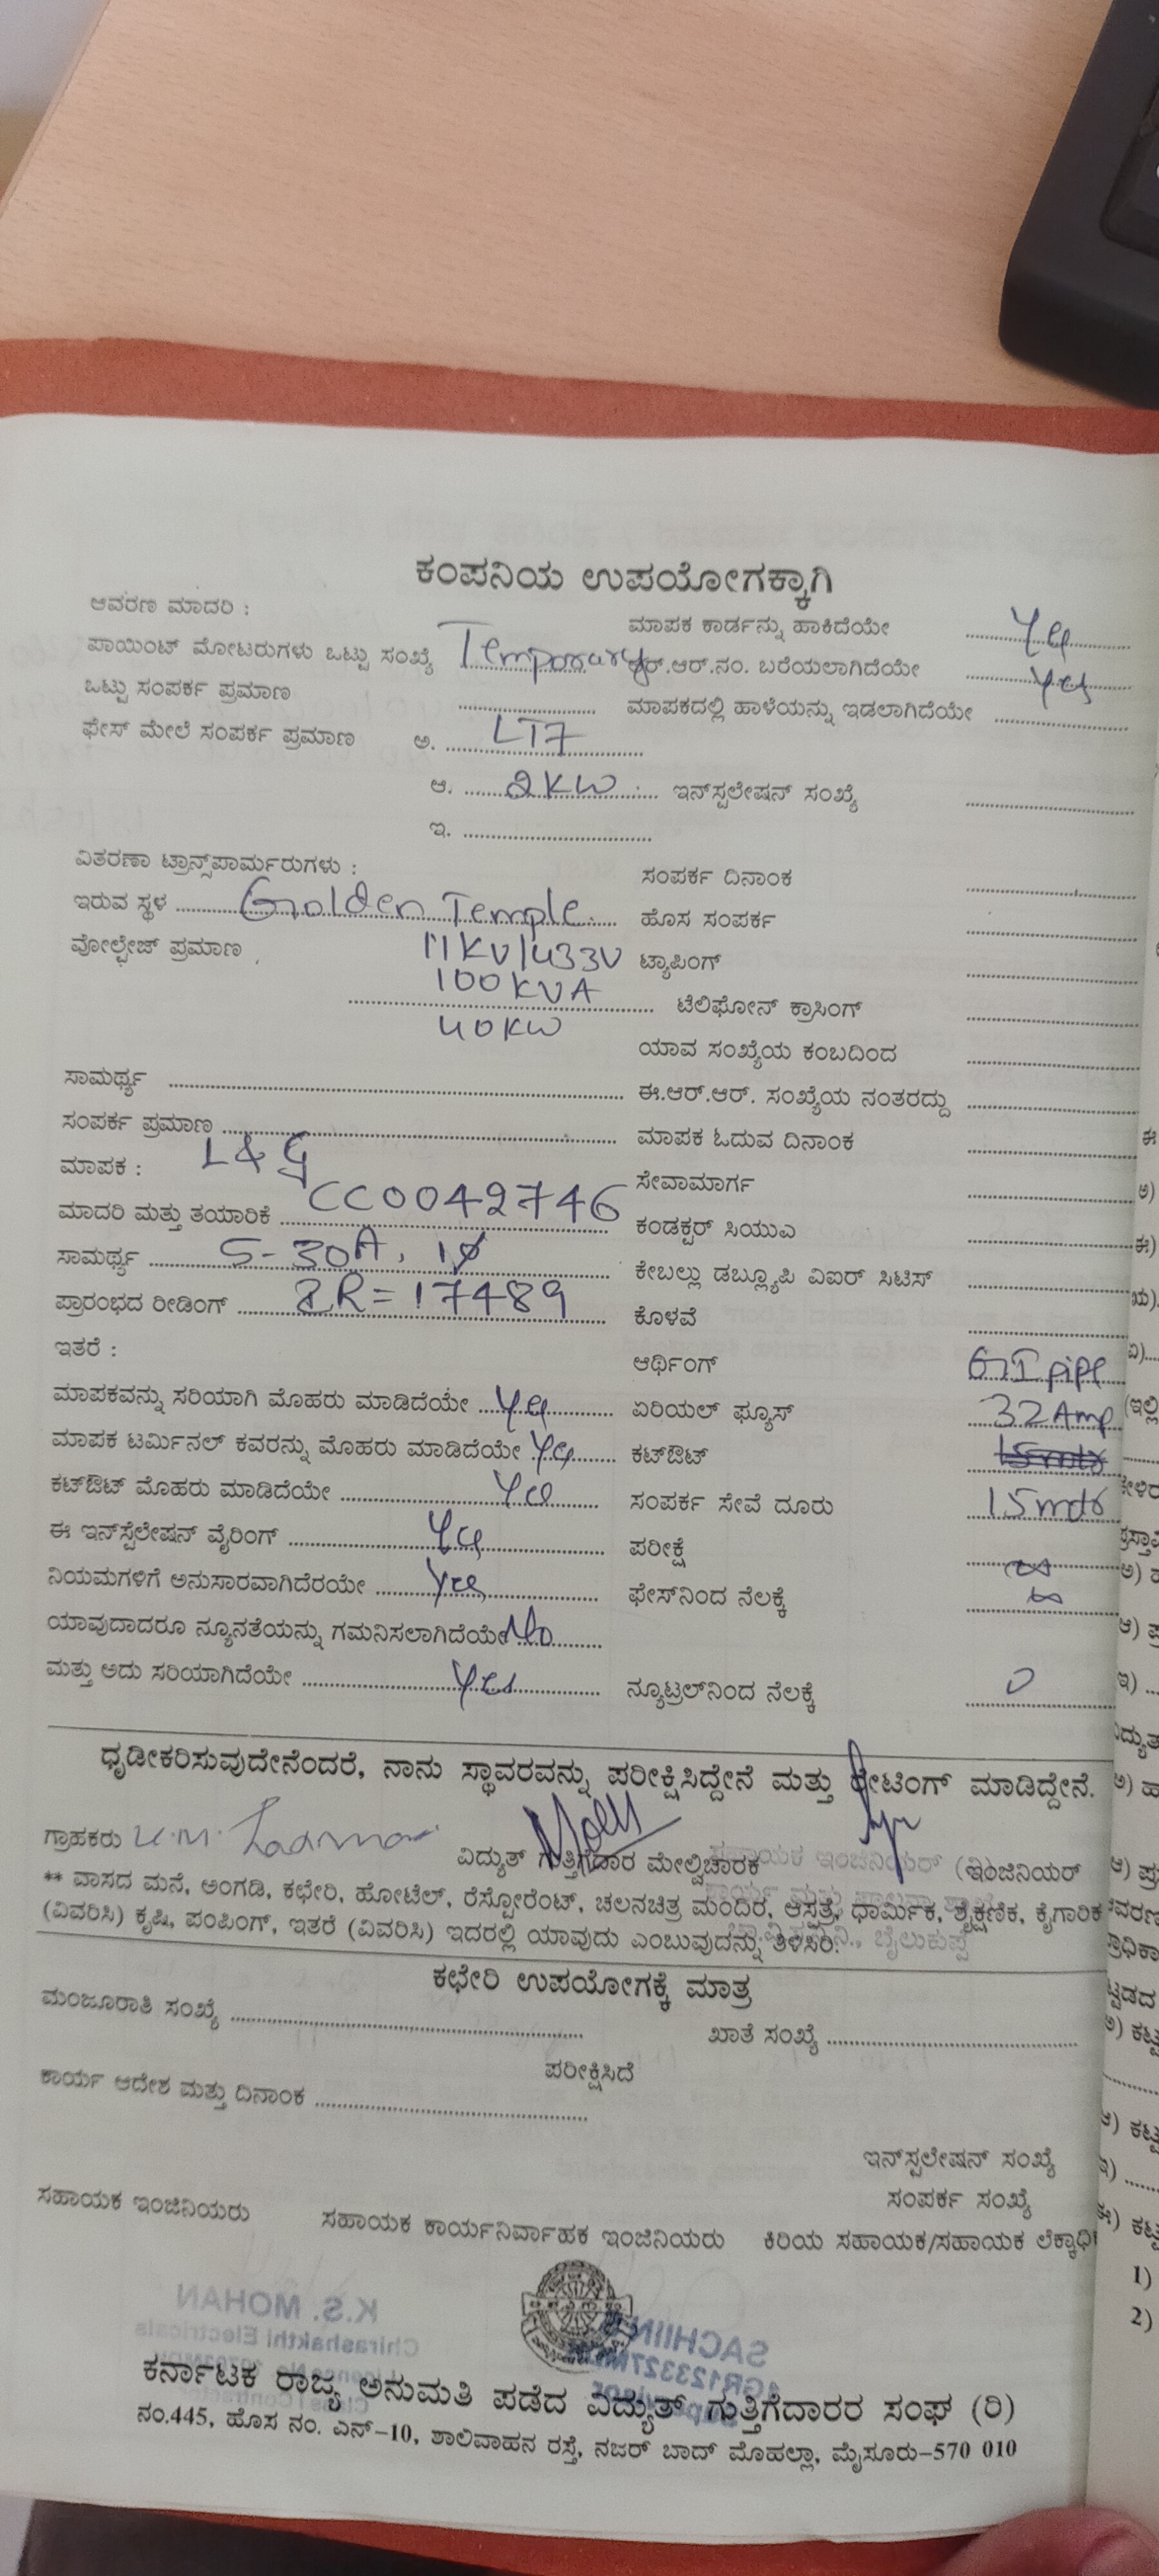 ಕಂಪನಿಯ ಉಪಯೋಗಕ್ಕಾಗಿ
ಆವರಣ ಮಾದರಿ :
ಮಾಪಕ ಕಾರ್ಡನ್ನು ಹಾಕಿದೆಯೇ Yes
ಪಾಯಿಂಟ್ ಮೋಟರುಗಳು ಒಟ್ಟು ಸಂಖ್ಯೆ Temporary
ಆರ್.ಆರ್.ನಂ. ಬರೆಯಲಾಗಿದೆಯೇ Yes
ಒಟ್ಟು ಸಂಪರ್ಕ ಪ್ರಮಾಣ
ಮಾಪಕದಲ್ಲಿ ಹಾಳೆಯನ್ನು ಇಡಲಾಗಿದೆಯೇ
ಫೇಸ್ ಮೇಲೆ ಸಂಪರ್ಕ ಪ್ರಮಾಣ ಅ. LT7
ಆ. 2KW ಇನ್‌ಸ್ಟಲೇಷನ್ ಸಂಖ್ಯೆ
ಇ.
ವಿತರಣಾ ಟ್ರಾನ್ಸ್‌ಪಾರ್ಮರುಗಳು :
ಸಂಪರ್ಕ ದಿನಾಂಕ
ಇರುವ ಸ್ಥಳ Golden Temple
ಹೊಸ ಸಂಪರ್ಕ
ವೋಲ್ಟೇಜ್ ಪ್ರಮಾಣ 11KV/433V
ಟ್ಯಾಪಿಂಗ್
100KVA
ಟೆಲಿಫೋನ್ ಕ್ರಾಸಿಂಗ್
40KW
ಯಾವ ಸಂಖ್ಯೆಯ ಕಂಬದಿಂದ
ಸಾಮರ್ಥ್ಯ
ಈ.ಆರ್.ಆರ್. ಸಂಖ್ಯೆಯ ನಂತರದ್ದು
ಸಂಪರ್ಕ ಪ್ರಮಾಣ
ಮಾಪಕ ಓದುವ ದಿನಾಂಕ
ಮಾಪಕ : L&G
ಸೇವಾಮಾರ್ಗ
ಮಾದರಿ ಮತ್ತು ತಯಾರಿಕೆ CC0042746
ಕಂಡಕ್ಟರ್ ಸಿಯುಎ
ಸಾಮರ್ಥ್ಯ 5-30A, 1Ø
ಕೇಬಲ್ಲು ಡಬ್ಲ್ಯೂಪಿ ವಿಐರ್ ಸಿಟಿಸ್
ಪ್ರಾರಂಭದ ರೀಡಿಂಗ್ IR=17489
ಕೊಳವೆ
ಇತರೆ :
ಅರ್ಥಿಂಗ್ GI pipe
ಮಾಪಕವನ್ನು ಸರಿಯಾಗಿ ಮೊಹರು ಮಾಡಿದೆಯೇ Yes
ಏರಿಯಲ್ ಫ್ಯೂಸ್ 32Amp
ಮಾಪಕ ಟರ್ಮಿನಲ್ ಕವರನ್ನು ಮೊಹರು ಮಾಡಿದೆಯೇ Yes
ಕಟ್‌ಔಟ್
ಕಟ್‌ಔಟ್ ಮೊಹರು ಮಾಡಿದೆಯೇ Yes
ಸಂಪರ್ಕ ಸೇವೆ ದೂರು 15mts
ಈ ಇನ್‌ಸ್ಟಲೇಷನ್ ವೈರಿಂಗ್ Yes
ಪರೀಕ್ಷೆ ∞
ನಿಯಮಗಳಿಗೆ ಅನುಸಾರವಾಗಿದೆರಯೇ Yes
ಫೇಸ್‌ನಿಂದ ನೆಲಕ್ಕೆ ∞
ಯಾವುದಾದರೂ ನ್ಯೂನತೆಯನ್ನು ಗಮನಿಸಲಾಗಿದೆಯೇ No
ಮತ್ತು ಅದು ಸರಿಯಾಗಿದೆಯೇ Yes
ನ್ಯೂಟ್ರಲ್‌ನಿಂದ ನೆಲಕ್ಕೆ 0
ಧೃಡೀಕರಿಸುವುದೇನೆಂದರೆ, ನಾನು ಸ್ಥಾವರವನ್ನು ಪರೀಕ್ಷಿಸಿದ್ದೇನೆ ಮತ್ತು ರೇಟಿಂಗ್ ಮಾಡಿದ್ದೇನೆ.
ಗ್ರಾಹಕರು
ವಿದ್ಯುತ್ ಗುತ್ತಿಗೆದಾರ ಮೇಲ್ವಿಚಾರಕ
(ಇಂಜಿನಿಯರ್
** ವಾಸದ ಮನೆ, ಅಂಗಡಿ, ಕಛೇರಿ, ಹೋಟೆಲ್, ರೆಸ್ಟೋರೆಂಟ್, ಚಲನಚಿತ್ರ ಮಂದಿರ, ಆಸ್ಪತ್ರೆ, ಧಾರ್ಮಿಕ, ಶೈಕ್ಷಣಿಕ, ಕೈಗಾರಿಕ
(ವಿವರಿಸಿ) ಕೃಷಿ, ಪಂಪಿಂಗ್, ಇತರೆ (ವಿವರಿಸಿ) ಇದರಲ್ಲಿ ಯಾವುದು ಎಂಬುವುದನ್ನು ತಿಳಿಸಿರಿ.
ಕಛೇರಿ ಉಪಯೋಗಕ್ಕೆ ಮಾತ್ರ
ಮಂಜೂರಾತಿ ಸಂಖ್ಯೆ
ಖಾತೆ ಸಂಖ್ಯೆ
ಪರೀಕ್ಷಿಸಿದೆ
ಕಾರ್ಯ ಆದೇಶ ಮತ್ತು ದಿನಾಂಕ
ಇನ್‌ಸ್ಟಲೇಷನ್ ಸಂಖ್ಯೆ
ಸಂಪರ್ಕ ಸಂಖ್ಯೆ
ಸಹಾಯಕ ಇಂಜಿನಿಯರು
ಸಹಾಯಕ ಕಾರ್ಯನಿರ್ವಾಹಕ ಇಂಜಿನಿಯರು
ಕಿರಿಯ ಸಹಾಯಕ/ಸಹಾಯಕ
K.S. MOHAN
Chirashakthi Electricals
SACHIN
ಕರ್ನಾಟಕ ರಾಜ್ಯ ಅನುಮತಿ ಪಡೆದ ವಿದ್ಯುತ್ ಗುತ್ತಿಗೆದಾರರ ಸಂಘ (ರಿ)
ನಂ.445, ಹೊಸ ನಂ. ಎನ್-10, ಶಾಲಿವಾಹನ ರಸ್ತೆ, ನಜರ್ ಬಾದ್ ಮೊಹಲ್ಲಾ, ಮೈಸೂರು-570 010